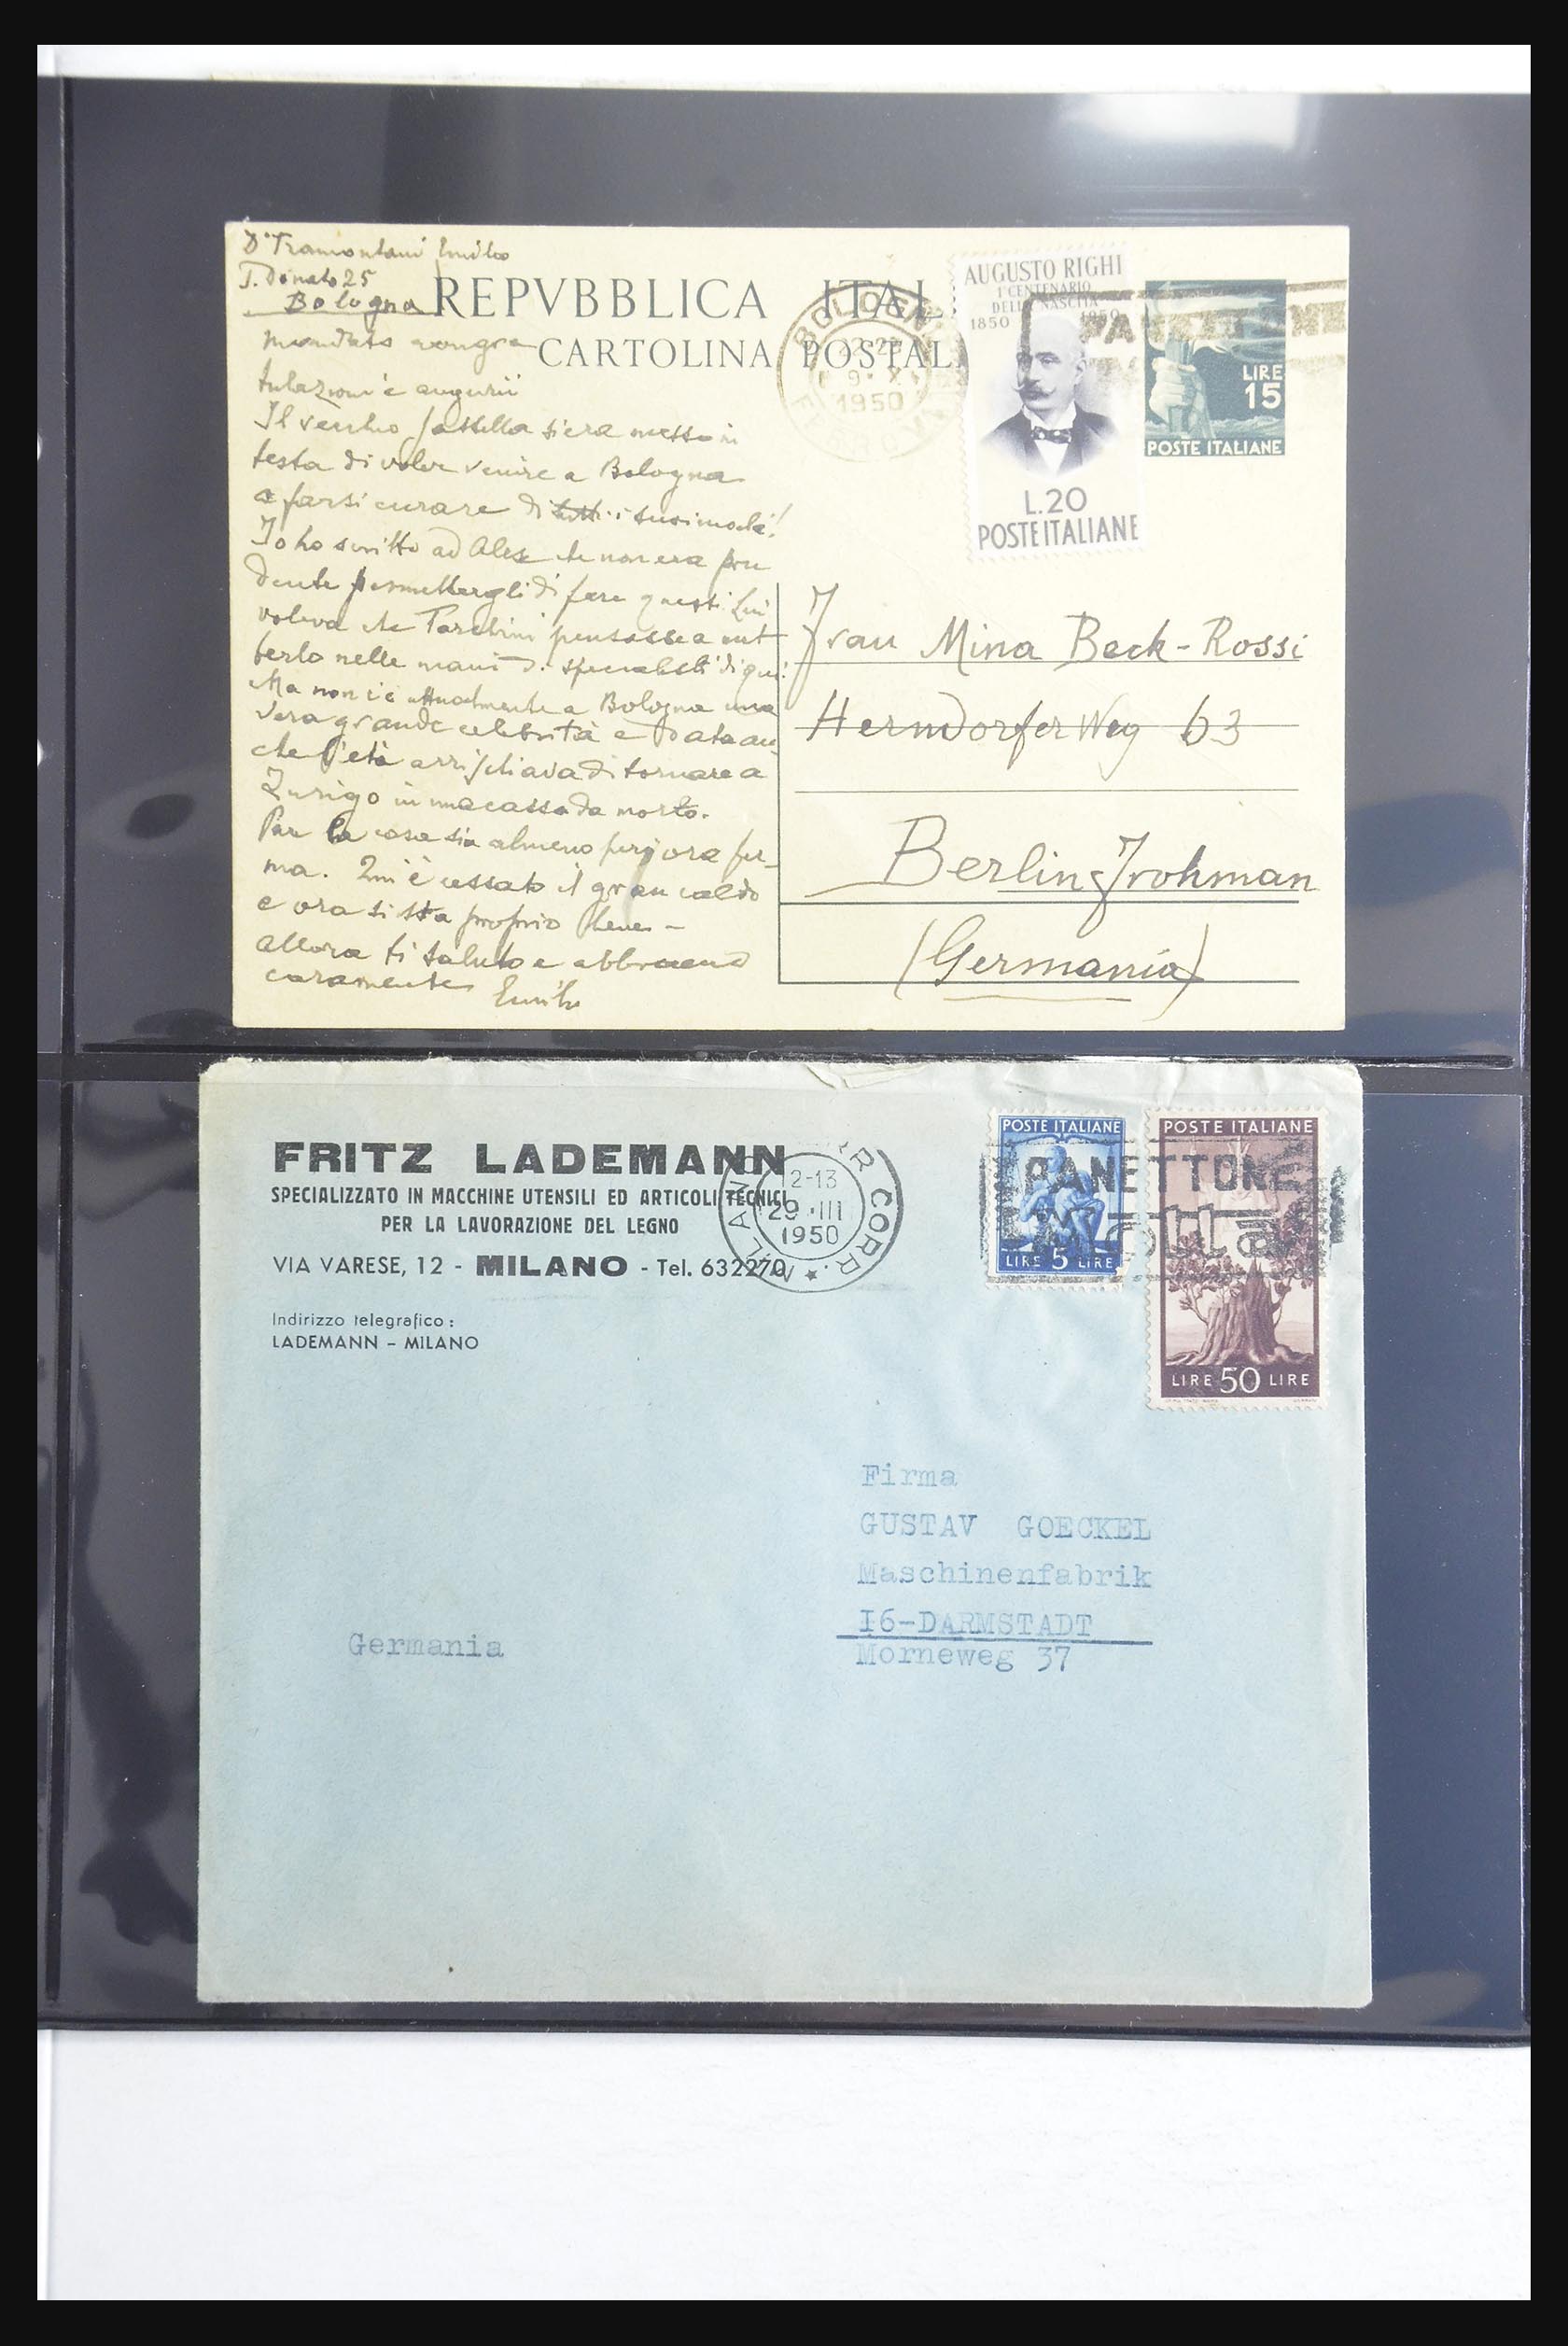 Dr Tramontani Emilio
S. Donato 25
Bologna
REPVBBLICA ITAL
CARTOLINA POSTAL
BOLOGNA
9 X
1950
AUGUSTO RIGHI
1° CENTENARIO
DELLA NASCITA
1850 1950
L.20
POSTE ITALIANE
PANETTONE
LIRE
15
POSTE ITALIANE
mandato congra
tulazioni e augurii
Il vecchio si era messo in
testa di voler venire a Bologna
a farsi curare di tutti i suoi mali!
Io ho scritto ad che non era pru
dente permettergli di fare questi. Lui
voleva che pensasse a met
terlo nelle mani di specialisti di qui.
Ma non c'è attualmente a Bologna una
vera grande celebrità e data an
che l'età arrischiava di tornare a
Zurigo in una cassa da morto.
Pare la cosa sia almeno per ora fer-
ma. Qui è cessato il gran caldo
e ora si sta proprio bene -
allora ti saluto e abbraccio
caramente Emilio
Frau Mina Beck-Rossi
Herndorfer Weg 63
Berlin Frohman
(Germania)
FRITZ LADEMANN
SPECIALIZZATO IN MACCHINE UTENSILI ED ARTICOLI TECNICI
PER LA LAVORAZIONE DEL LEGNO
VIA VARESE, 12 - MILANO - Tel. 632270
Indirizzo telegrafico:
LADEMANN - MILANO
MILANO CORR.
12-13
29 · III
1950
POSTE ITALIANE
LIRE 5 LIRE
POSTE ITALIANE
LIRE 50 LIRE
PANETTONE
Firma
GUSTAV GOECKEL
Maschinenfabrik
I6-DARMSTADT
Morneweg 37
Germania